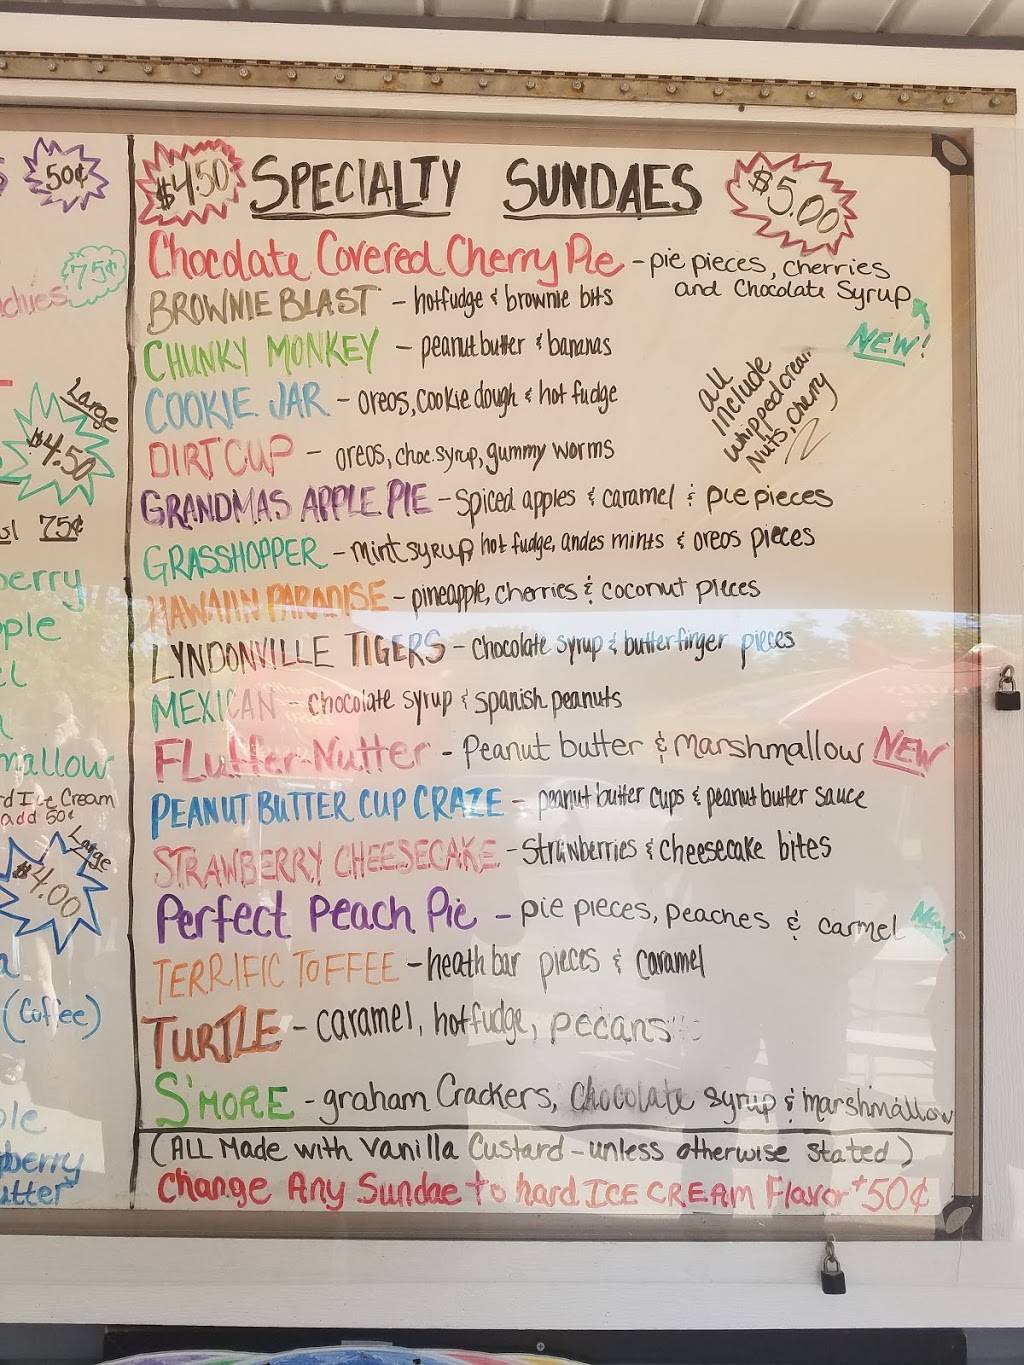 50¢
75¢
Large
$4.50
75¢
berry
mallow
Ice Cream
add 50¢
Large
$4.00
(Coffee)
$4.50 SPECIALTY SUNDAES $5.00
Chocolate Covered Cherry Pie - pie pieces, cherries
and Chocolate Syrup
NEW!
BROWNIE BLAST - hotfudge & brownie bits
CHUNKY MONKEY - peanut butter & bananas
COOKIE JAR - oreos, cookie dough & hot fudge
all
include
whipped cream
Nuts, cherry
DIRT CUP - oreos, choc. syrup, gummy worms
GRANDMAS APPLE PIE - Spiced apples & caramel & pie pieces
GRASSHOPPER - mint syrup hot fudge, andes mints & oreos pieces
HAWAIIN PARADISE - pineapple, cherries & coconut pieces
LYNDONVILLE TIGERS - chocolate syrup & butterfinger pieces
MEXICAN - chocolate syrup & spanish peanuts
FLuffer-Nutter - Peanut butter & Marshmallow NEW
PEANUT BUTTER CUP CRAZE - peanut butter cups & peanut butter sauce
STRAWBERRY CHEESECAKE - Strawberries & cheesecake bites
Perfect Peach Pie - pie pieces, peaches & carmel New
TERRIFIC TOFFEE - heath bar pieces & caramel
TURTLE - caramel, hotfudge, pecans
S'MORE - graham Crackers, Chocolate syrup & marshmallow
(ALL Made with Vanilla Custard - unless otherwise stated)
Change Any Sundae to hard ICE CREAM Flavor +50¢